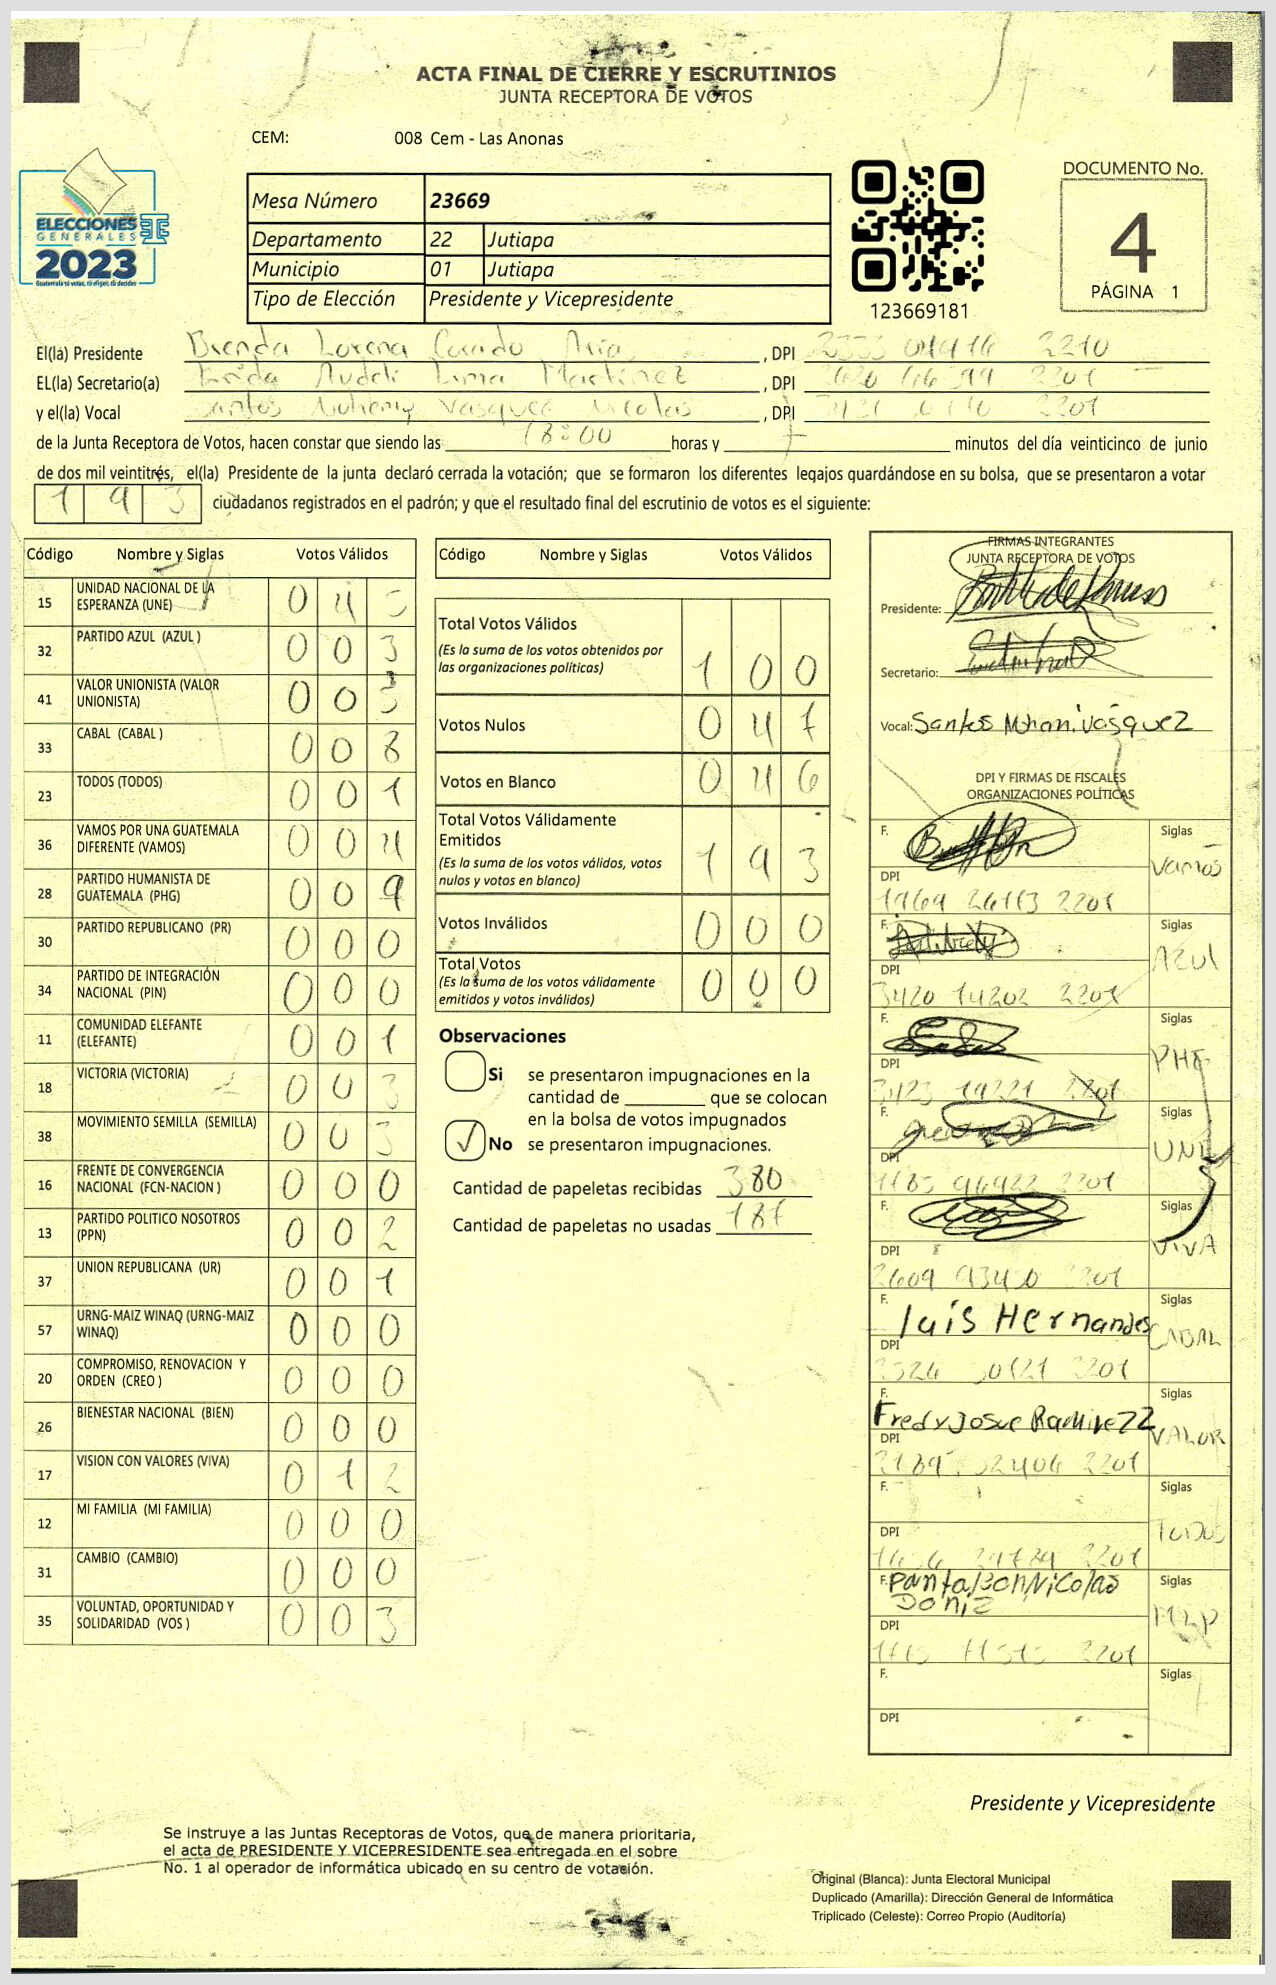 ACTA FINAL DE CIERRE Y ESCRUTINIOS
JUNTA RECEPTORA DE VOTOS
CEM: 008 Cem - Las Anonas
ELECCIONES
GENERALES
2023
Guatemala tú votas, tú eliges, tú decides
Mesa Número 23669
Departamento 22 Jutiapa
Municipio 01 Jutiapa
Tipo de Elección Presidente y Vicepresidente
123669181
DOCUMENTO No.
4
PÁGINA 1
El(la) Presidente Brenda Lorena , DPI 2210
EL(la) Secretario(a) Lima Martinez , DPI 2201
y el(la) Vocal Santos Vasquez Nicolas , DPI 2201
de la Junta Receptora de Votos, hacen constar que siendo las 18:00 horas y minutos del día veinticinco de junio
de dos mil veintitrés, el(la) Presidente de la junta declaró cerrada la votación; que se formaron los diferentes legajos guardándose en su bolsa, que se presentaron a votar
193 ciudadanos registrados en el padrón; y que el resultado final del escrutinio de votos es el siguiente:
Código Nombre y Siglas Votos Válidos
15 UNIDAD NACIONAL DE LA ESPERANZA (UNE) 0 4
32 PARTIDO AZUL (AZUL ) 0 0 3
41 VALOR UNIONISTA (VALOR UNIONISTA) 0 0
33 CABAL (CABAL ) 0 0 8
23 TODOS (TODOS) 0 0 1
36 VAMOS POR UNA GUATEMALA DIFERENTE (VAMOS) 0 0 4
28 PARTIDO HUMANISTA DE GUATEMALA (PHG) 0 0 9
30 PARTIDO REPUBLICANO (PR) 0 0 0
34 PARTIDO DE INTEGRACIÓN NACIONAL (PIN) 0 0 0
11 COMUNIDAD ELEFANTE (ELEFANTE) 0 0 1
18 VICTORIA (VICTORIA) 0 0 3
38 MOVIMIENTO SEMILLA (SEMILLA) 0 0 3
16 FRENTE DE CONVERGENCIA NACIONAL (FCN-NACION ) 0 0 0
13 PARTIDO POLITICO NOSOTROS (PPN) 0 0 2
37 UNION REPUBLICANA (UR) 0 0 1
57 URNG-MAIZ WINAQ (URNG-MAIZ WINAQ) 0 0 0
20 COMPROMISO, RENOVACION Y ORDEN (CREO ) 0 0 0
26 BIENESTAR NACIONAL (BIEN) 0 0 0
17 VISION CON VALORES (VIVA) 0 1 2
12 MI FAMILIA (MI FAMILIA) 0 0 0
31 CAMBIO (CAMBIO) 0 0 0
35 VOLUNTAD, OPORTUNIDAD Y SOLIDARIDAD (VOS ) 0 0 3
Código Nombre y Siglas Votos Válidos
Total Votos Válidos
(Es la suma de los votos obtenidos por
las organizaciones políticas) 1 0 0
Votos Nulos 0 4 7
Votos en Blanco 0 4 6
Total Votos Válidamente
Emitidos
(Es la suma de los votos válidos, votos
nulos y votos en blanco) 1 9 3
Votos Inválidos 0 0 0
Total Votos
(Es la suma de los votos válidamente
emitidos y votos inválidos) 0 0 0
Observaciones
Si se presentaron impugnaciones en la
cantidad de ________ que se colocan
en la bolsa de votos impugnados
✓ No se presentaron impugnaciones.
Cantidad de papeletas recibidas 380
Cantidad de papeletas no usadas 187
FIRMAS INTEGRANTES
JUNTA RECEPTORA DE VOTOS
Presidente:
Secretario:
Vocal: Santos Vásquez
DPI Y FIRMAS DE FISCALES
ORGANIZACIONES POLÍTICAS
F. Siglas
Vamos
DPI 2201
F. Siglas
AZUL
DPI 3420 14202 2201
F. Siglas
PHG
DPI 2201
F. Siglas
UNE
DPI 2201
F. Siglas
VIVA
DPI 2201
F. Luis Hernandes Siglas
CABAL
DPI 2201
F. Fredy Josue Ramirezz Siglas
VALOR
DPI 2201
F. Siglas
TODOS
DPI 2201
F. Pantaleon Nicolas Siglas
Doniz
MLP
DPI 2201
F. Siglas
DPI
Presidente y Vicepresidente
Se instruye a las Juntas Receptoras de Votos, que de manera prioritaria,
el acta de PRESIDENTE Y VICEPRESIDENTE sea entregada en el sobre
No. 1 al operador de informática ubicado en su centro de votación.
Original (Blanca): Junta Electoral Municipal
Duplicado (Amarilla): Dirección General de Informática
Triplicado (Celeste): Correo Propio (Auditoría)